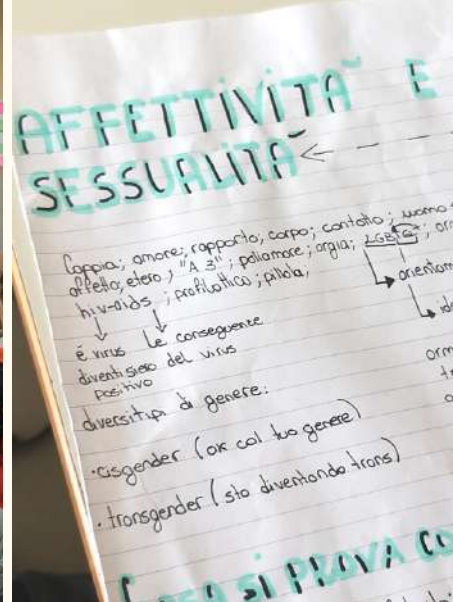 AFFETTIVITÀ E
SESSUALITÀ
Coppia; amore; rapporto; corpo; contatto; uomo
affetto; etero; "A 3"; poliamore; orgia; LGBTQ+; orm
hiv-aids; profilattico; pillola,
orientam
é virus le conseguenze
diventi siero del virus
positivo
ide
diversi tipi di genere:
orm
• cisgender (ok col tuo genere)
• transgender (sto diventando trans)
SI PROVA CO